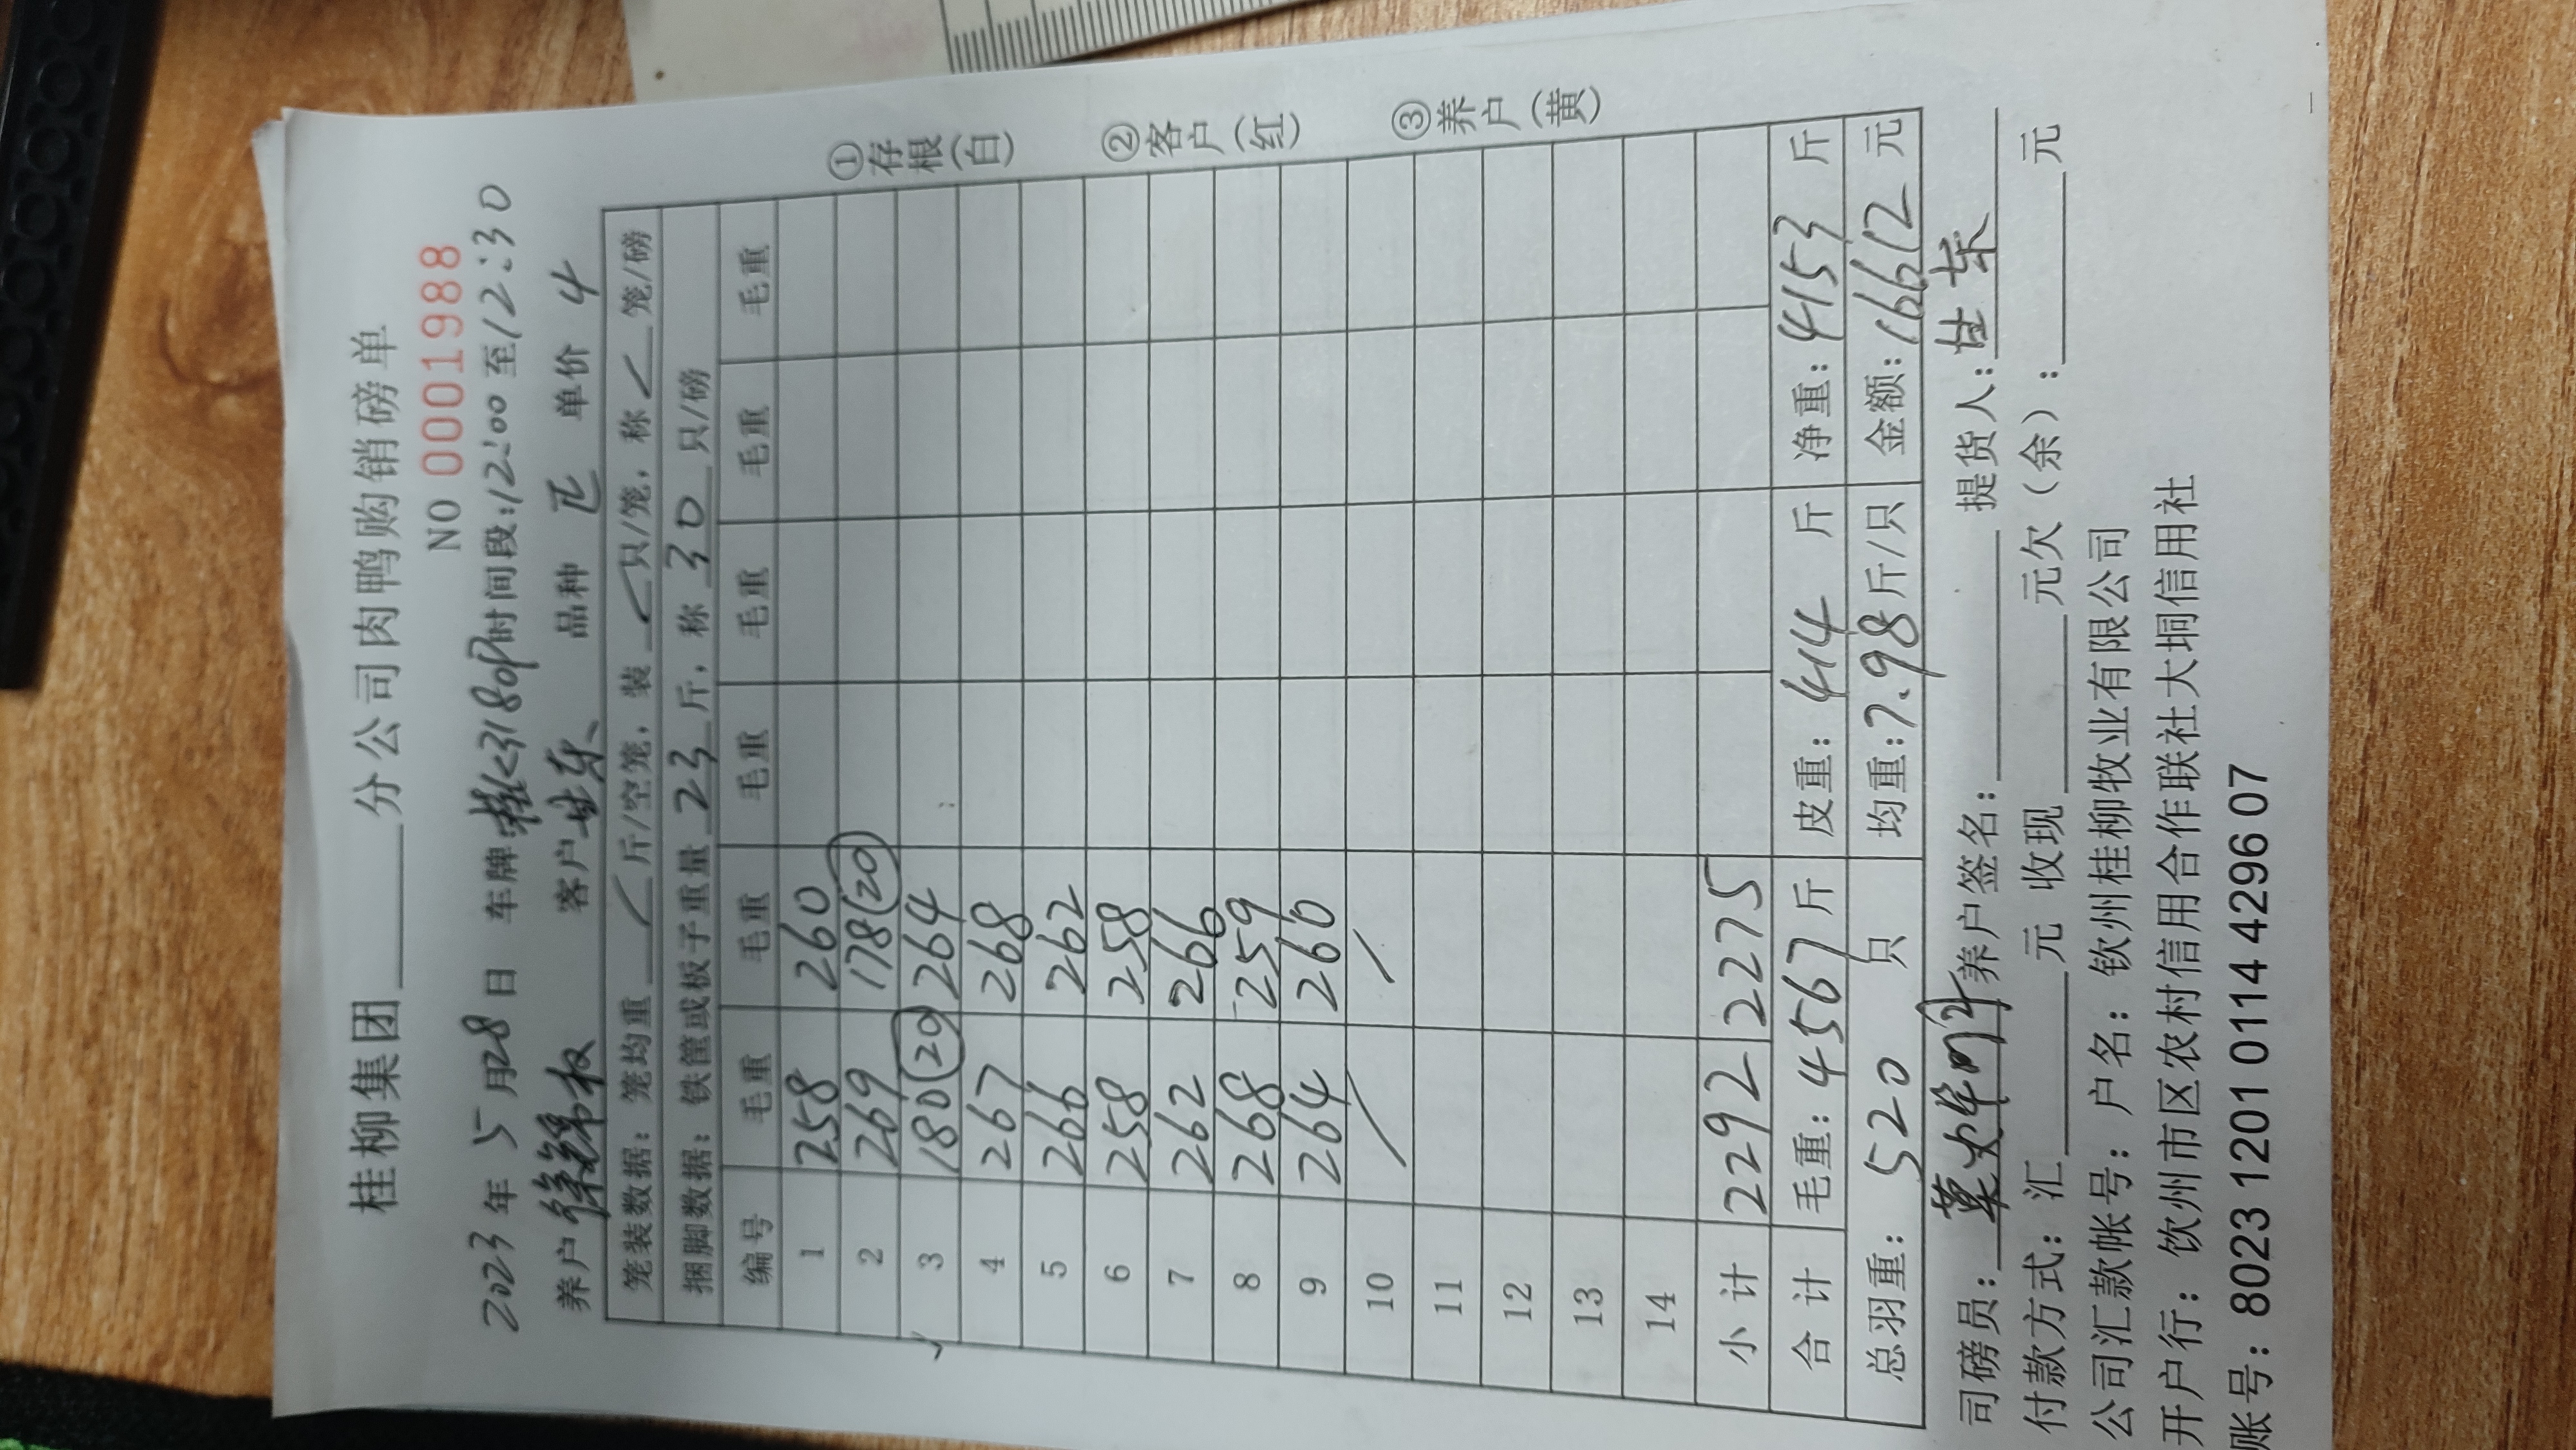 桂柳集团______分公司肉鸭购销磅单
NO 00001988
2023 年 5 月 28 日 车牌 桂 3180P 时间段：12:00 至 12:30
养户 客户 世东 品种 单价 4
笼装数据：笼均重 / 斤/空笼，装 / 只/笼，称 / 笼/磅
捆脚数据：铁筐或板子重量 23 斤，称 30 只/磅
编号 毛重 毛重 毛重 毛重 毛重 毛重
1 258 260
2 269 178 (20)
3 180 (20) 264
4 267 268
5 266 262
6 258 258
7 262 266
8 268 259
9 264 260
10 / /
11
12
13
14
小计 2292 2275
合计 毛重：4567 斤 皮重：414 斤 净重：4153 斤
总羽重： 520 只 均重：7.98 斤/只 金额：16612 元
司磅员： 养户签名：______ 提货人：世东
付款方式：汇______元 收现______元欠（余）：______元
公司汇款帐号：户名：钦州桂柳牧业有限公司
开户行：钦州市区农村信用合作联社大垌信用社
账号：8023 1201 0114 4296 07
①存根（白） ②客户（红） ③养户（黄）